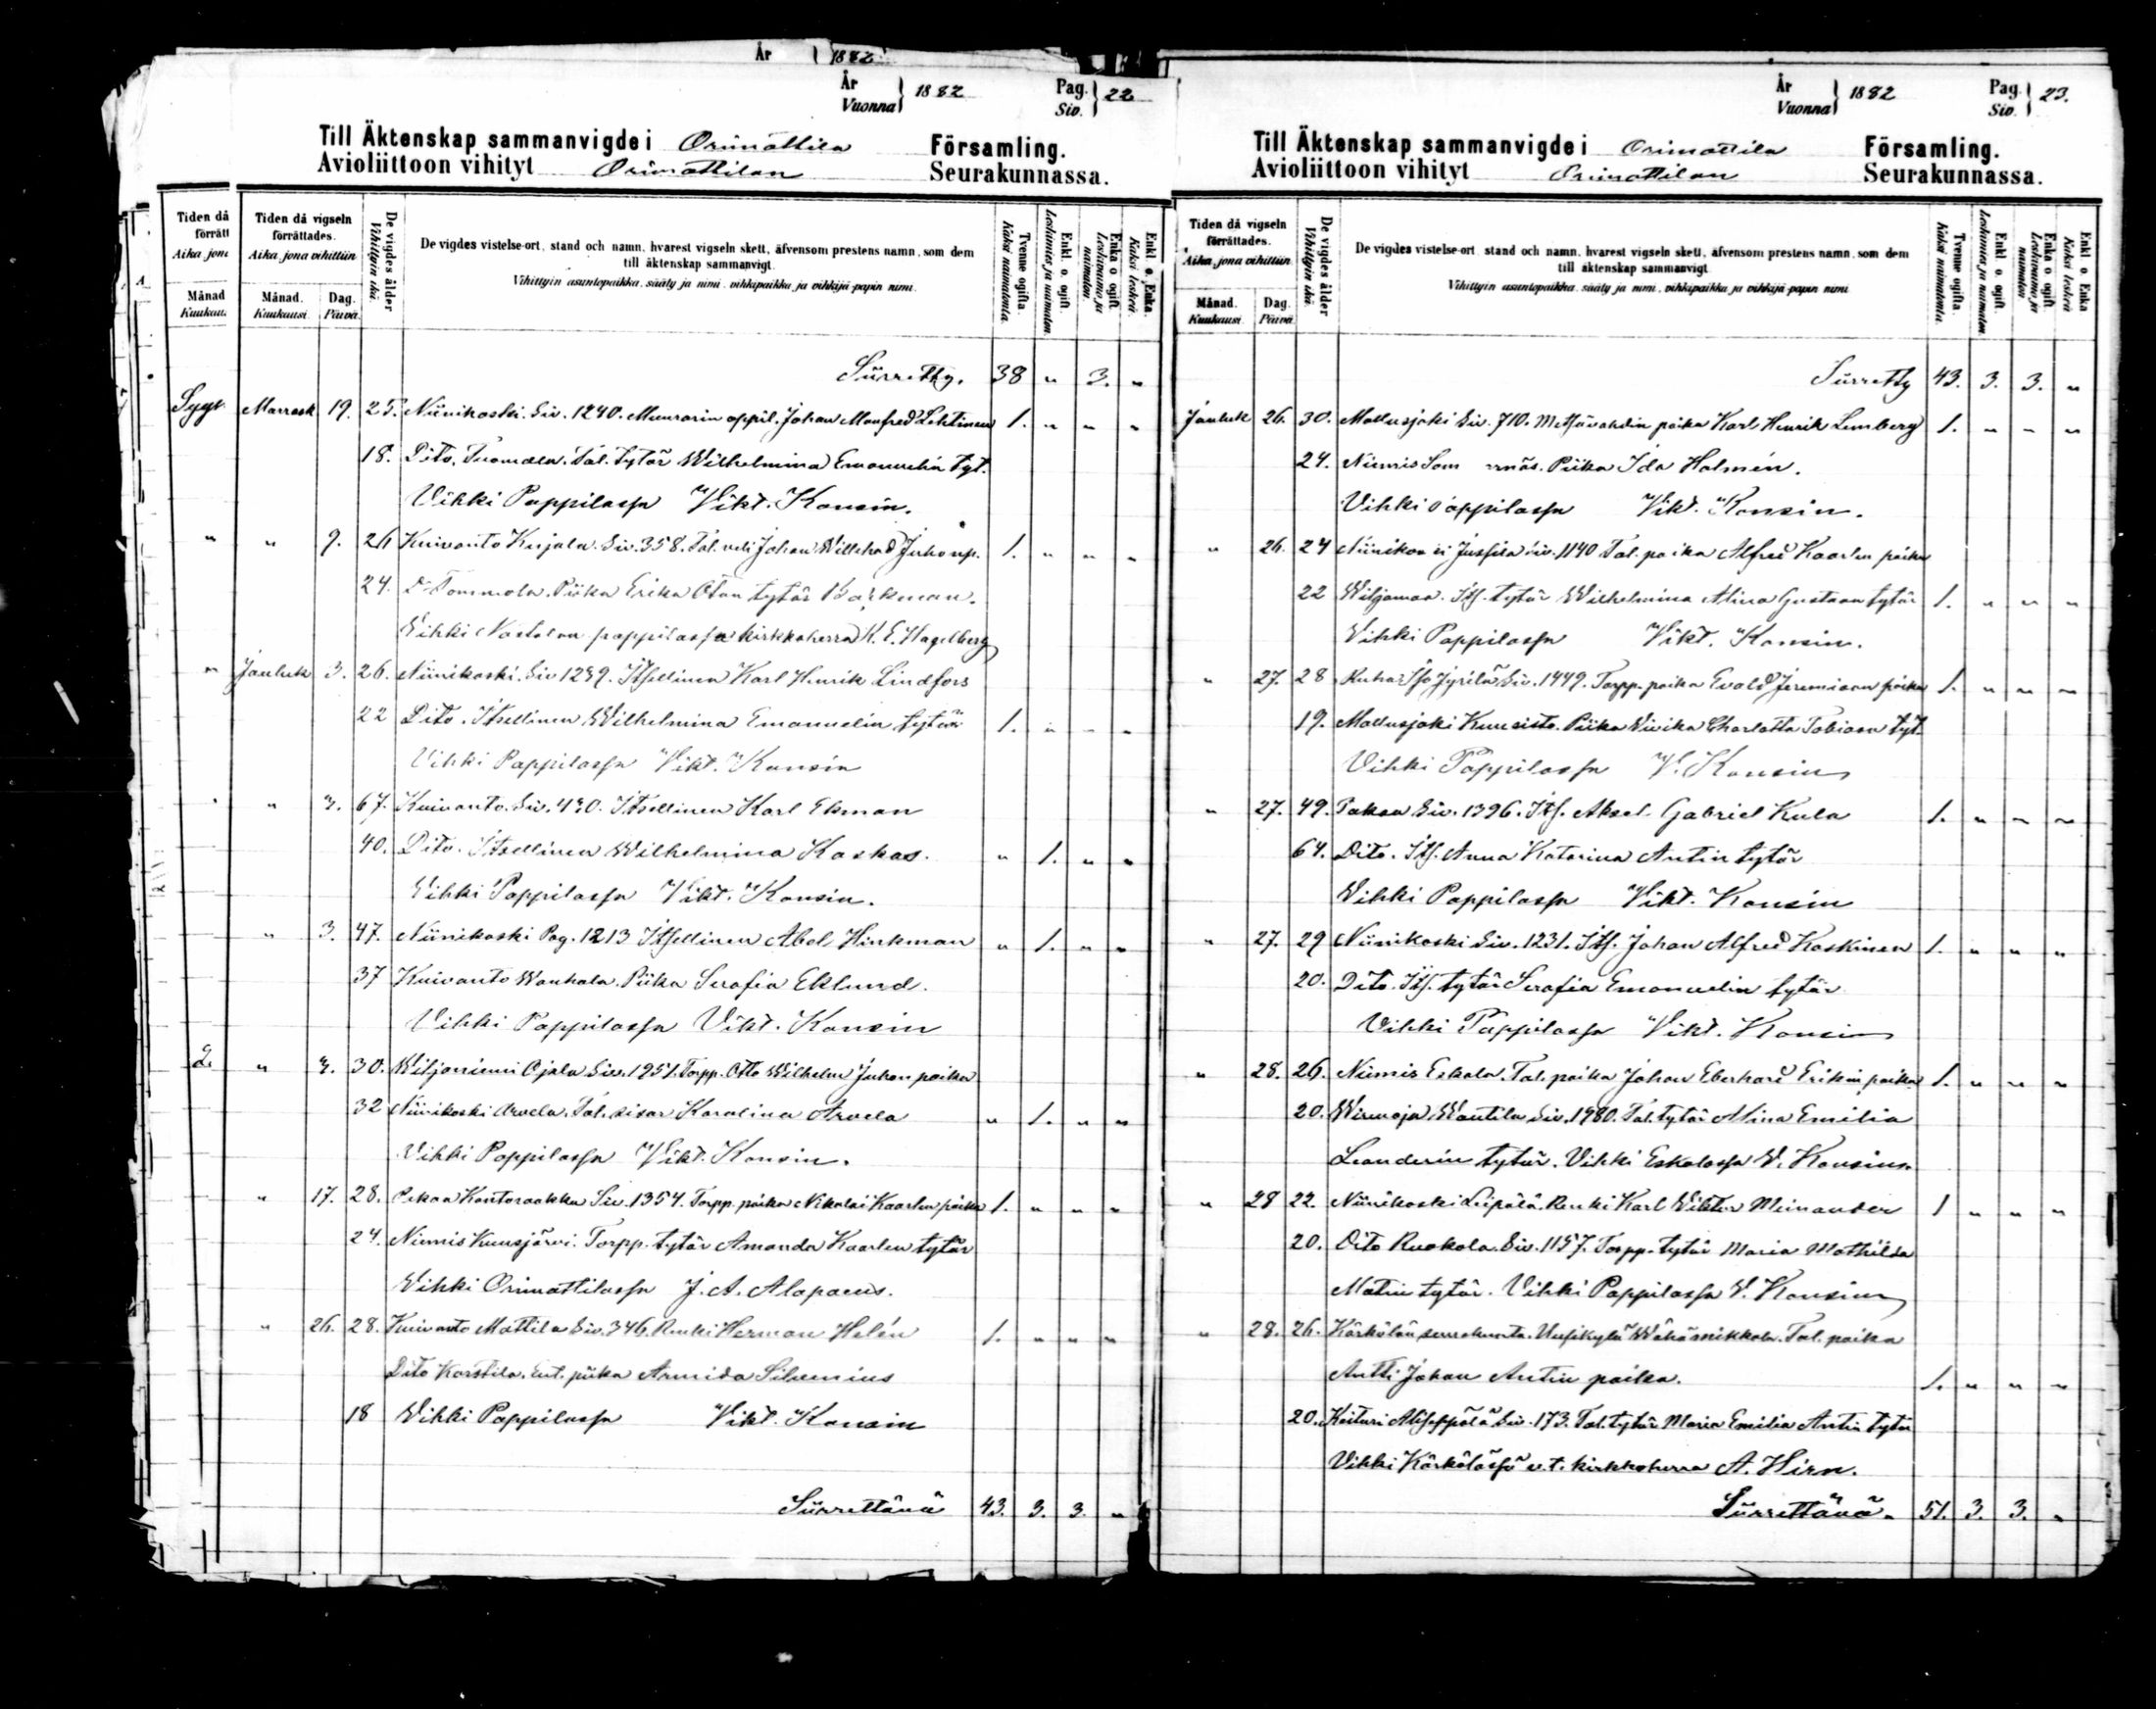 År 1882
År
Vuonna 1882
Pag.
Siv. 22
Till Äktenskap sammanvigde i Orimattila Församling.
Avioliittoon vihityt Orimattilan Seurakunnassa.
Tiden då förrätt
Aika, jona
Månad
Kuukau.
Tiden då vigseln förrättades.
Aika, jona vihittiin
Månad. Kuukausi. Dag. Päivä.
De vigdes ålder
Vihittyin ikä.
De vigdes vistelse-ort, stand och namn, hvarest vigseln skett, äfvensom prestens namn, som dem
till äktenskap sammanvigt
Vihittyin asuntopaikka, sääty ja nimi, vihkipaikka ja vihkijä-papin nimi.
Tvenne ogifta.
Kaksi naimatonta.
Enkl. o. ogift.
Leskimies ja naimaton.
Enka o ogift
Leskivaimo ja naimaton.
Enkl. o. Enka.
Kaksi leskeä.
Siirretty. 38 " 3. "
Marrask 19. 25. Niinikoski. Siv. 1240. Muurarin oppil. Johan Manfred Lehtinen 1. " " "
18. Dito. Tuomela. Tal. tytär Wilhelmina Emanuelin tyt.
Vihki Pappilassa Vikt. Konsin.
" " 9. 26 Kuivanto Kujala. Siv. 358. Tal. veli Johan Willehad Juhonp. 1. " " "
24. Do Tommola. Piika Erika Oton tytär Barkman.
Vihki Nastolan pappilassa kirkkoherra K. E. Hagelberg
" Jouluk 3. 26. Niinikoski. Siv 1239. Itsellinen Karl Henrik Lindfors
22 Dito. Itsellinen Wilhelmina Emanuelin tytär 1. " " "
Vihki Pappilassa Vikt. Konsin
" " 3. 67. Kuivanto. Siv. 430. Itsellinen Karl Ekman
40. Dito. Itsellinen Wilhelmina Koskas. " 1. " "
Vihki Pappilassa Vikt. Konsin.
" 3. 47. Niinikoski Pag. 1213 Itsellinen Abel Hinkman " 1. " "
37 Kuivanto Wanhala. Piika Serafia Eklund.
Vihki Pappilassa Vikt. Konsin
" 3. 30. Wiljaniemi Ojala Siv. 1951. Torpp. Otto Wilhelm Juhon poika
32 Niinikoski Arvela. Tal. sisar Karolina Arvela " 1. " "
Vihki Pappilassa Vikt. Konsin.
" 17. 28. Pakaa Kantoraakku Siv. 1354. Torpp. poika Nikolai Kaarlen poika 1. " " "
24. Niemis Kuusjärvi. Torpp. tytär Amanda Kaarlen tytär
Vihki Orimattilassa J. A. Alopaeus.
" 26. 28. Kuivanto Mattila Siv. 346. Renki Herman Helén 1. " " "
Dito Karstila. Ent. piika Armida Silvenius
18 Vihki Pappilassa Vikt. Konsin
Siirrettävä 43. 3. 3. "
År
Vuonna 1882
Pag.
Siv. 23.
Till Äktenskap sammanvigde i Orimattila Församling.
Avioliittoon vihityt Orimattilan Seurakunnassa.
Tiden då vigseln förrättades.
Aika, jona vihittiin
Månad. Kuukausi. Dag. Päivä.
De vigdes ålder
Vihittyin ikä.
De vigdes vistelse-ort, stand och namn, hvarest vigseln skett, äfvensom prestens namn, som dem
till äktenskap sammanvigt
Vihittyin asuntopaikka, sääty ja nimi, vihkipaikka ja vihkijä-papin nimi
Tvenne ogifta.
Kaksi naimatonta.
Enkl o. ogift.
Leskimies ja naimaton.
Enka o. ogift
Leskivaimo ja naimaton
Enkl o. Enka
Kaksi leskeä
Siirretty 43. 3. 3. "
Jouluk 26. 30. Mallusjoki Siv. 710. Metsävahdin poika Karl Henrik Lemberg 1. " " "
24. Niemis Piika Ida Holmén.
Vihki Pappilassa Vikt. Konsin.
" 26. 24 Jussila Siv. 1140 Tal. poika Alfred Kaarlen poika
22 Wiljamaa. Its. tytär Wilhelmina Alina Gustaan tytär 1. " " "
Vihki Pappilassa Vikt. Konsin.
" 27. 28 Jyrilä Siv. 1449. Torpp. poika Evald Jeremiaan poika 1. " " "
19. Mallusjoki Kuusisto. Piika Wiika Charlotta Tobiaan tyt.
Vihki Pappilassa V. Konsin
" 27. 49. Pakaa Siv. 1396. Its. Aksel Gabriel Kula 1. " " "
64. Dito. Its. Anna Katarina Antin tytär
Vihki Pappilassa Vikt. Konsin
" 27. 29 Niinikoski Siv. 1231. Its. Johan Alfred Koskinen 1. " " "
20. Dito. Its. tytär Serafia Emanuelin tytär
Vihki Pappilassa Vikt. Konsin
" 28. 26. Niemis Eskola. Tal. poika Johan Eberhard Erikin poika 1. " " "
20. Wirenoja Mantila Siv. 1980. Tal. tytär Alina Emilia
Leanderin tytär. Vihki Eskolassa V. Konsin.
" 28 22. Niinikoski Leipälä. Renki Karl Viktor Meinander 1 " " "
20. Dito Ruokola. Siv. 1157. Torpp. tytär Maria Mathilda
Matin tytär. Vihki Pappilassa V. Konsin
" 28. 26. Kärkölän seurakunta. Uusikylä Wähämikkola. Tal. poika
Antti Johan Antin poika. 1. " " "
20. Keituri Aliseppälä Siv. 173. Tal. tytär Maria Emilia Antin tytär
Vihki Kärkölässä v. t. kirkkoherra A. Hirn.
Siirrettävä. 51. 3. 3. "